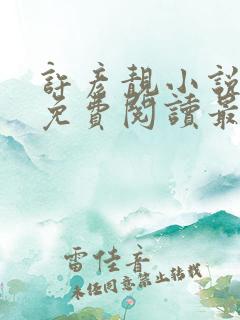 許彥靚小說
免費閱讀最
雷佳音
未經同意禁止轉載